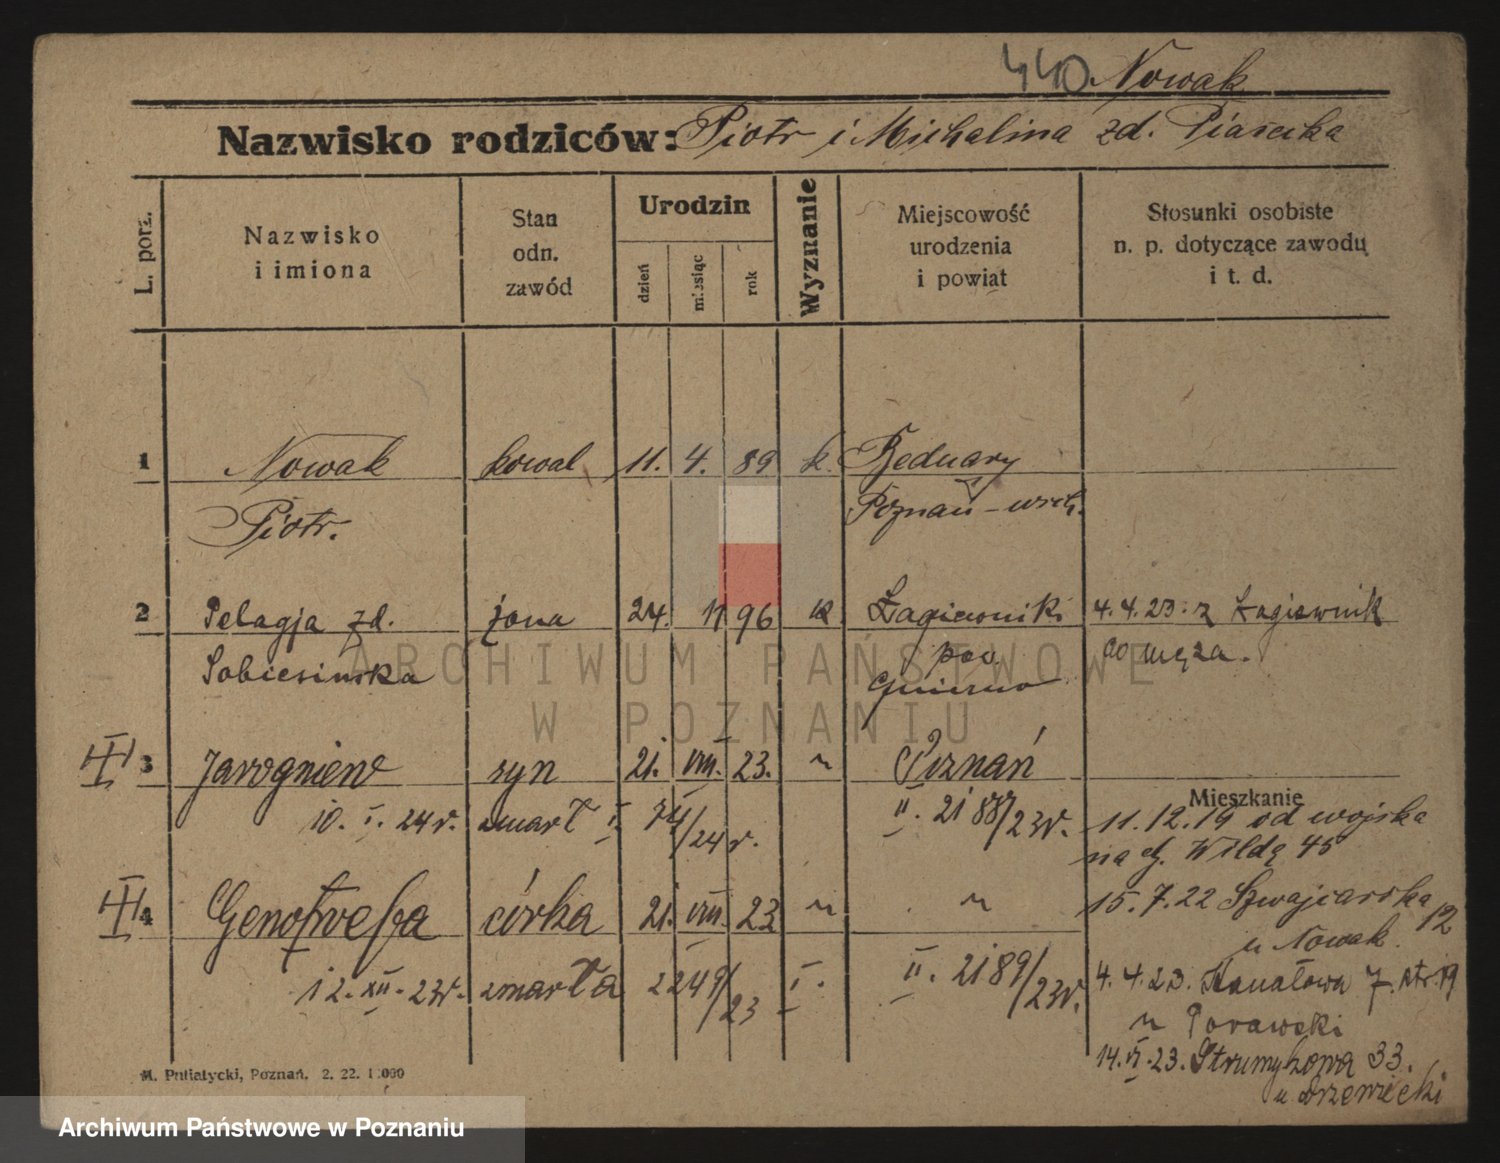 440 Nowak
Nazwisko rodziców: Piotr i Michalina zd. Piasecka
L. porz.
Nazwisko
i imiona
Stan
odn.
zawód
Urodzin
dzień
miesiąc
rok
Wyznanie
Miejscowość
urodzenia
i powiat
Stosunki osobiste
n. p. dotyczące zawodu
i t. d.
1 Nowak kowal 11. 4. 89 k. Bednary
Piotr. Poznań - wsch.
2 Pelagja zd. żona 24. 11 96 k Łagiewniki 4.4.23. z Łagiewnik
Sobiesińska pow. do męża.
Gniezno
III 3 Jarogniew syn 21. VIII. 23. " Poznań
Mieszkanie
10. I. 24r. zmarł I. 74/24 r. II. 2188/23r. 11.12.19 od wojska
na dz. Wildę 45
15.7.22 Szwajcarska 12
III 4 Genowefa córka 21. VIII. 23 " "
u Nowak.
12. XII. 23r. zmarła 2249/23 I. II. 2189/23r. 4.4.23. Kanałowa 7. ptr. 19
u Porawski
14. VI. 23. Strumykowa 33.
u Drzewiecki
M. Putiatycki, Poznań. 2. 22. 1000
ARCHIWUM PAŃSTWOWE
W POZNANIU
Archiwum Państwowe w Poznaniu